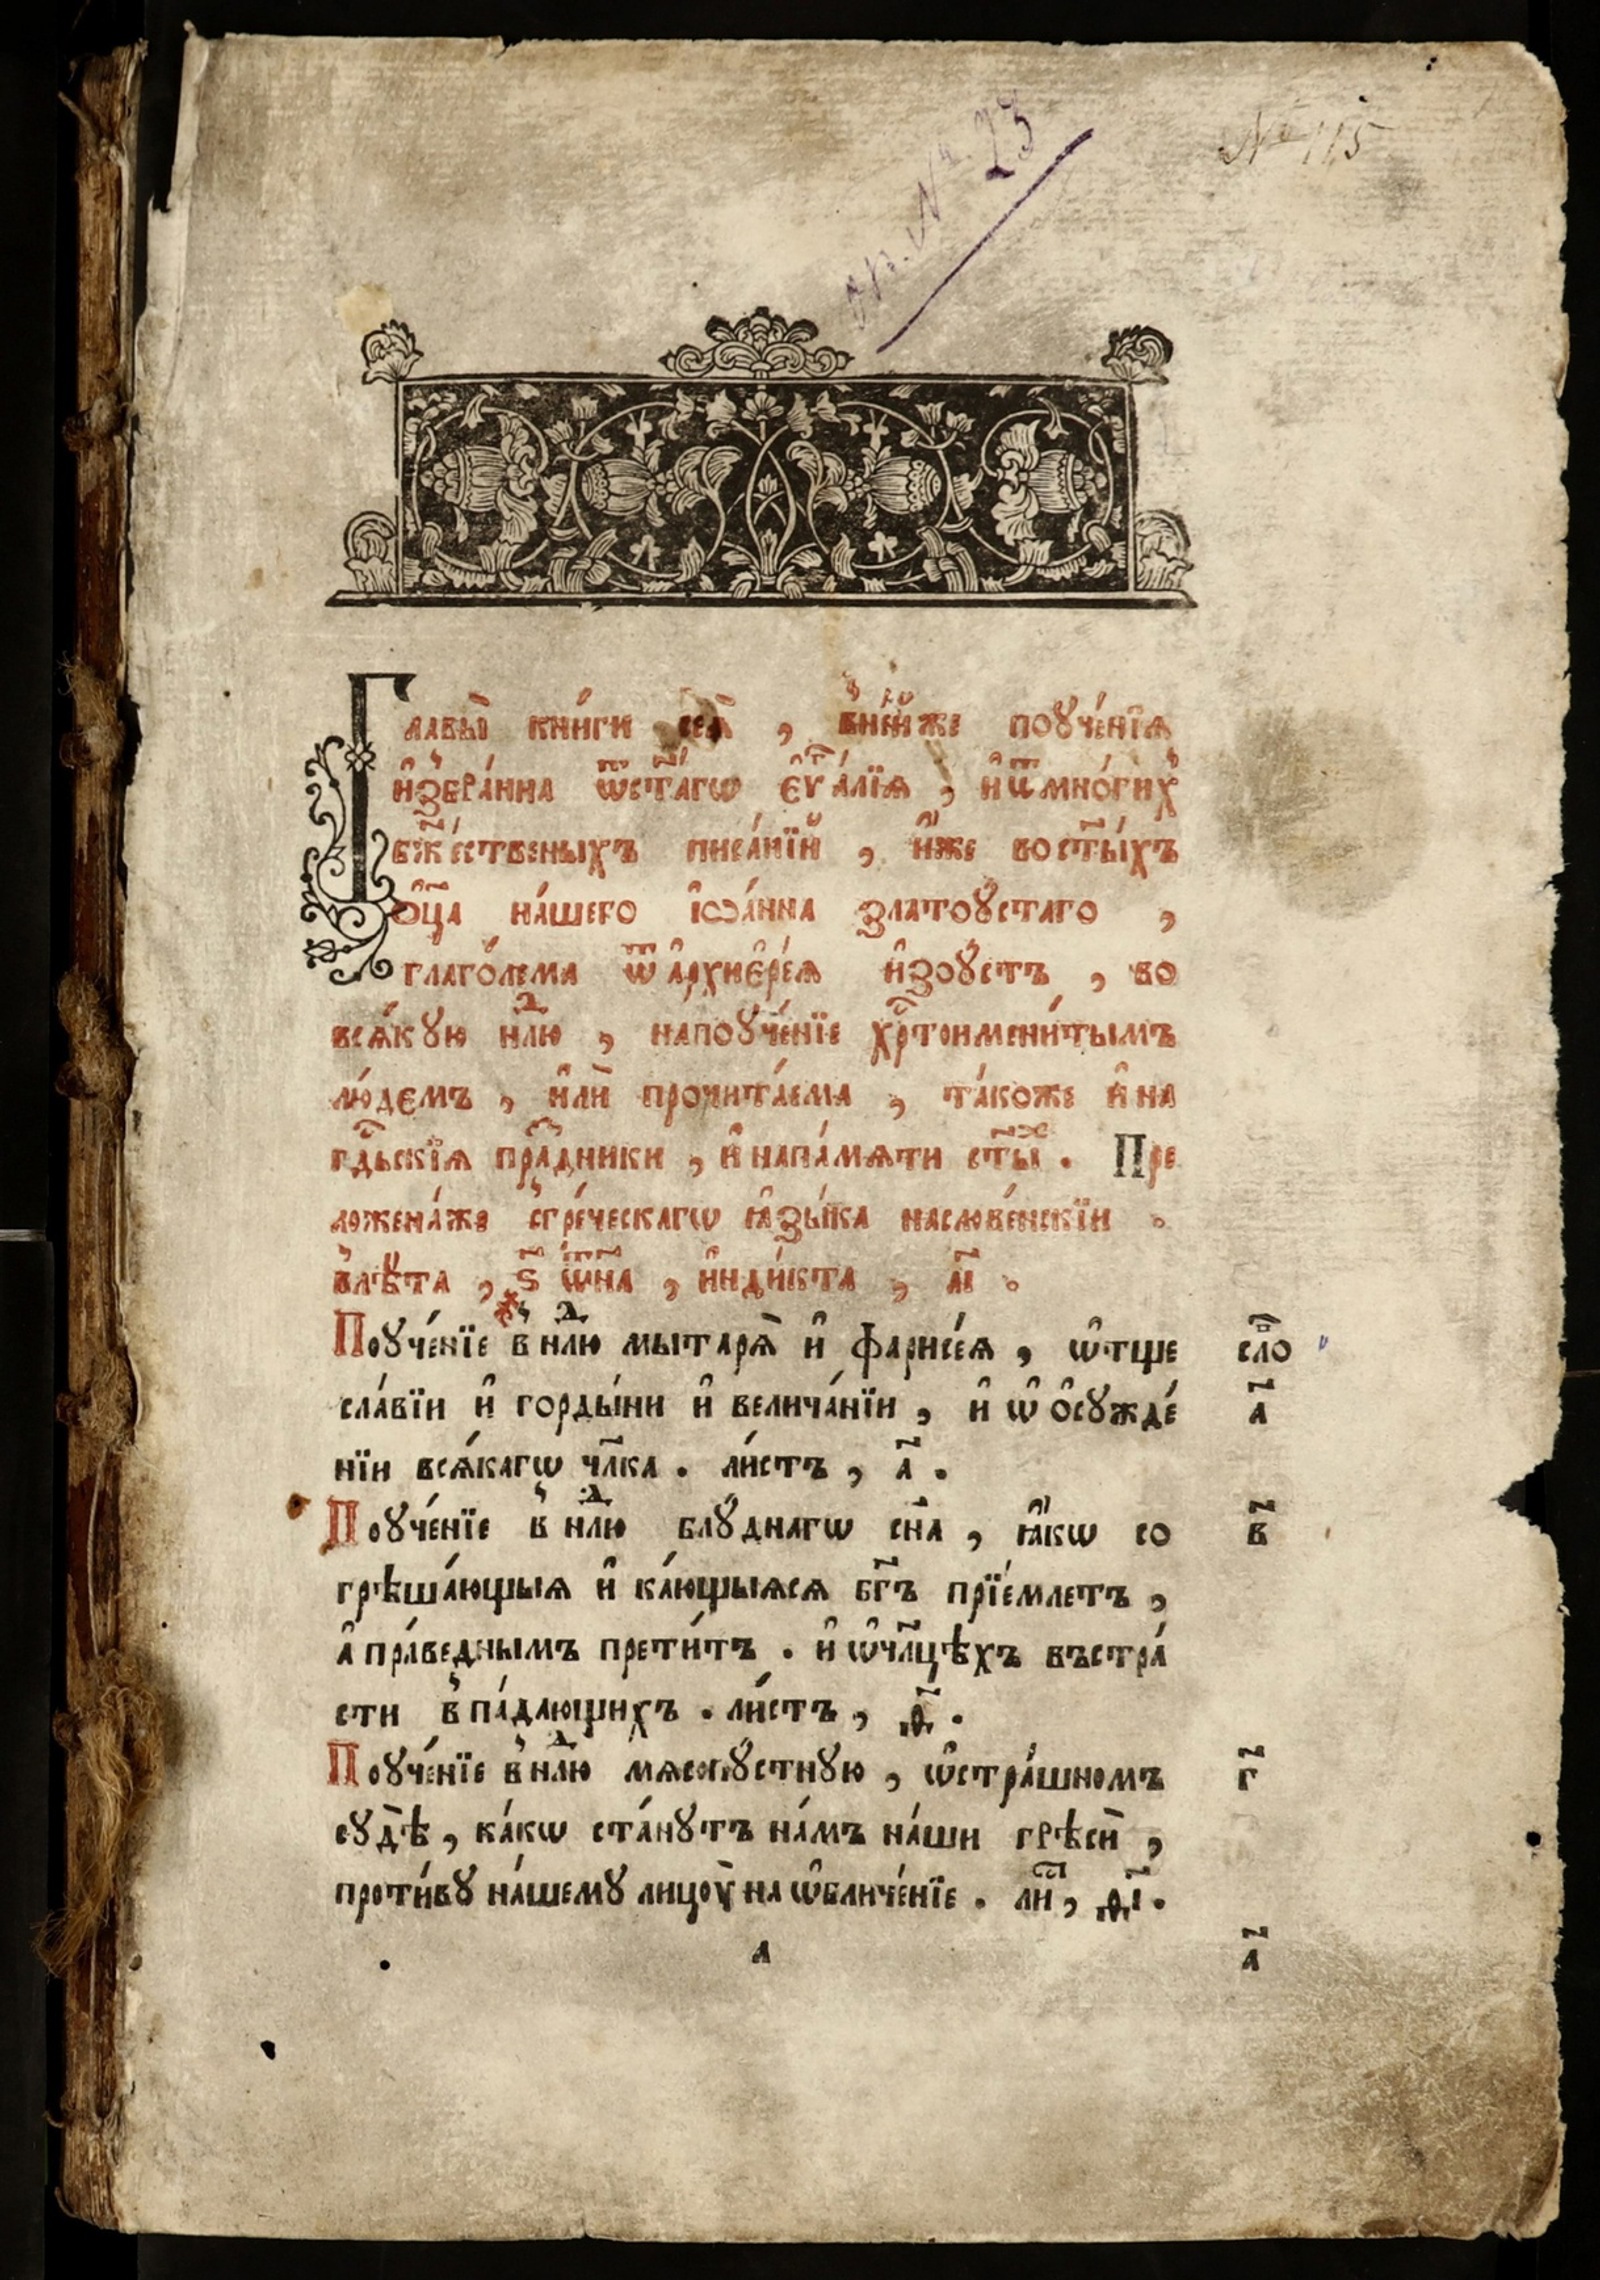 № 115
оп. № 23
Главы̀ кни́ги сеѧ̀ , в̾не́йже поꙋче́нїѧ
и҆збра́нна ѿст҃а́гѡ є҆ѵⷢ҇а́лїѧ , и҆ѿмно́гих̾
бж҃е́ственыхъ писа́нїй , и҆́же во ст҃ы́хъ
ѻ҆ц҃а на́шего і҆ѡа́нна златоꙋ́стаго ,
глаго́лема ѿ а҆рхиє҆ре́ѧ и҆зꙋ́стъ , во
всѧ́кꙋю нлⷣю , напоꙋче́нїе хрⷭ҇тоимени́тымъ
лю́демъ , и҆лѝ прочита́ема , та́коже и҆ на
гдⷭ҇ьскїѧ пра́здники , и҆ напа́мѧти ст҃ыⷯ . Пре
ложена́же с̾гре́ческагѡ ꙗ҆зы́ка насловенскїи .
в̾лѣ́та , ҂ѕ҃ ѿн҃а , и҆нди́кта , а҃і .
Поꙋче́нїе в̾ нлⷣю мытарѧ̀ и҆ фарисе́ѧ , ѡ҆тще сло
сла́вїи и҆ горды́ни и҆ велича́нїи , и҆ ѡ҆ ѻ҆сꙋжде́ а҃
нїи всѧ́кагѡ чл҃ка . ли́стъ , а҃ .
Поꙋче́нїе в̾ нлⷣю блꙋ́днагѡ сн҃а , ꙗ҆́кѡ со в҃
грѣша́ющыѧ и҆ ка́ющыѧсѧ бг҃ъ прїе́млетъ ,
а҆ пра́веднымъ прети́тъ . и҆ ѡ҆чл҃цѣхъ въстра́
сти в̾па́дающихъ . ли́стъ , д҃ .
Поꙋче́нїе в̾ нлⷣю мѧсопꙋ́стнꙋю , ѡ҆стра́шномъ г҃
сꙋдѣ̀ , ка́кѡ ста́нꙋтъ на́мъ на́ши грѣсѝ ,
проти́вꙋ на́шемꙋ лицꙋ̀ на ѡ҆бличе́нїе . лиⷭ҇ , д҃і .
а а҃